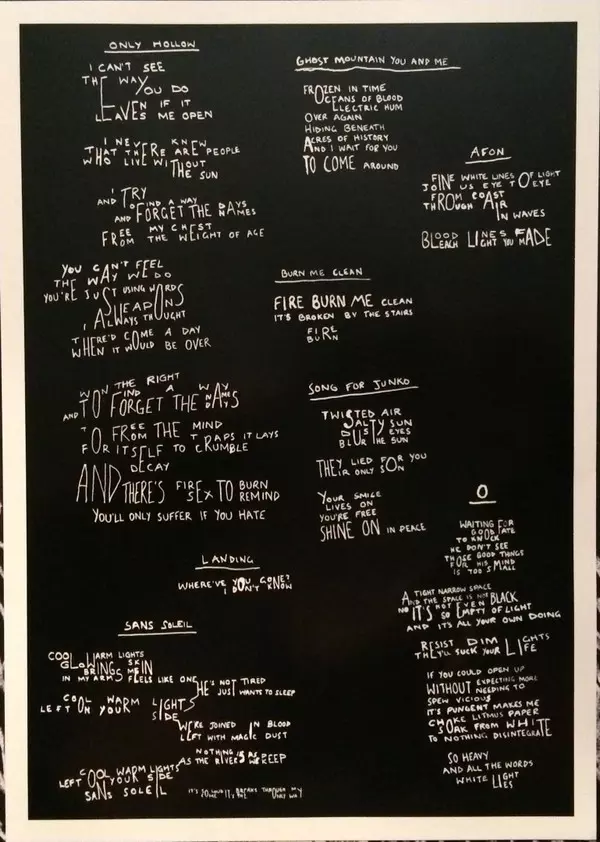 ONLY HOLLOW
I CAN'T SEE
THE WAY
YOU DO
EVEN IF IT
LEAVES ME OPEN
I NEVER KNEW
THAT THERE ARE PEOPLE
WHO LIVE WITHOUT
THE SUN
AND I TRY
TO FIND A WAY
AND FORGET THE DAYS
AND NAMES
FREE MY CHEST
FROM THE WEIGHT OF AGE
YOU CAN'T FEEL
THE WAY WE DO
YOU'RE JUST USING WORDS
AS WEAPONS
I ALWAYS THOUGHT
THERE'D COME A DAY
WHEN IT WOULD BE OVER
WON THE RIGHT
TO FIND A WAY
AND TO FORGET THE NAMES
AND DAYS
TO FREE THE MIND
FROM THE TRAPS IT LAYS
FOR ITSELF TO CRUMBLE
DECAY
AND THERE'S FIRE TO BURN
SEX TO REMIND
YOU'LL ONLY SUFFER IF YOU HATE
LANDING
WHERE'VE YOU GONE?
I DON'T KNOW
SANS SOLEIL
COOL WARM LIGHTS
GLOWING SKIN
BRINGS ME IN
IN MY ARMS FEELS LIKE ONE
HE'S NOT TIRED
HE'S JUST WANTS TO SLEEP
COOL WARM LIGHTS
LEFT ON YOUR SIDE
WE'RE JOINED IN BLOOD
LEFT WITH MAGIC DUST
NOTHING IS AS
AS THE RIVERS WE REEP
COOL WARM LIGHTS
LEFT ON YOUR SIDE
SANS SOLEIL
GHOST MOUNTAIN YOU AND ME
FROZEN IN TIME
OCEANS OF BLOOD
ELECTRIC HUM
OVER AGAIN
HIDING BENEATH
ACRES OF HISTORY
AND I WAIT FOR YOU
TO COME AROUND
BURN ME CLEAN
FIRE BURN ME CLEAN
IT'S BROKEN BY THE STAIRS
FIRE
BURN
SONG FOR JUNKO
TWISTED AIR
SALTY SUN
DUSTY EYES
BLUR THE SUN
THEY LIED FOR YOU
THEIR ONLY SON
YOUR SMILE
LIVES ON
YOU'RE FREE
SHINE ON IN PEACE
AFON
FINE WHITE LINES OF LIGHT
JOIN US EYE TO EYE
FROM COAST
THROUGH AIR
IN WAVES
BLOOD LINES FADE
BLEACH LIGHT YOU MADE
O
WAITING FOR
GOOD FATE
TO KNOCK
HE DON'T SEE
THOSE GOOD THINGS
FOR HIS MIND
IS TOO SMALL
A TIGHT NARROW SPACE
AND THE SPACE IS NOT BLACK
NO IT'S NOT EVEN
SO EMPTY OF LIGHT
AND IT'S ALL YOUR OWN DOING
RESIST DIM LIGHTS
THEY'LL SUCK YOUR LIFE
IF YOU COULD OPEN UP
WITHOUT EXPECTING MORE
NEEDING TO
SPEW VICIOUS
IT'S PUNGENT MAKES ME
CHOKE LITMUS PAPER
SOAK FROM WHITE
TO NOTHING DISINTEGRATE
SO HEAVY
AND ALL THE WORDS
WHITE LIGHT
LIES